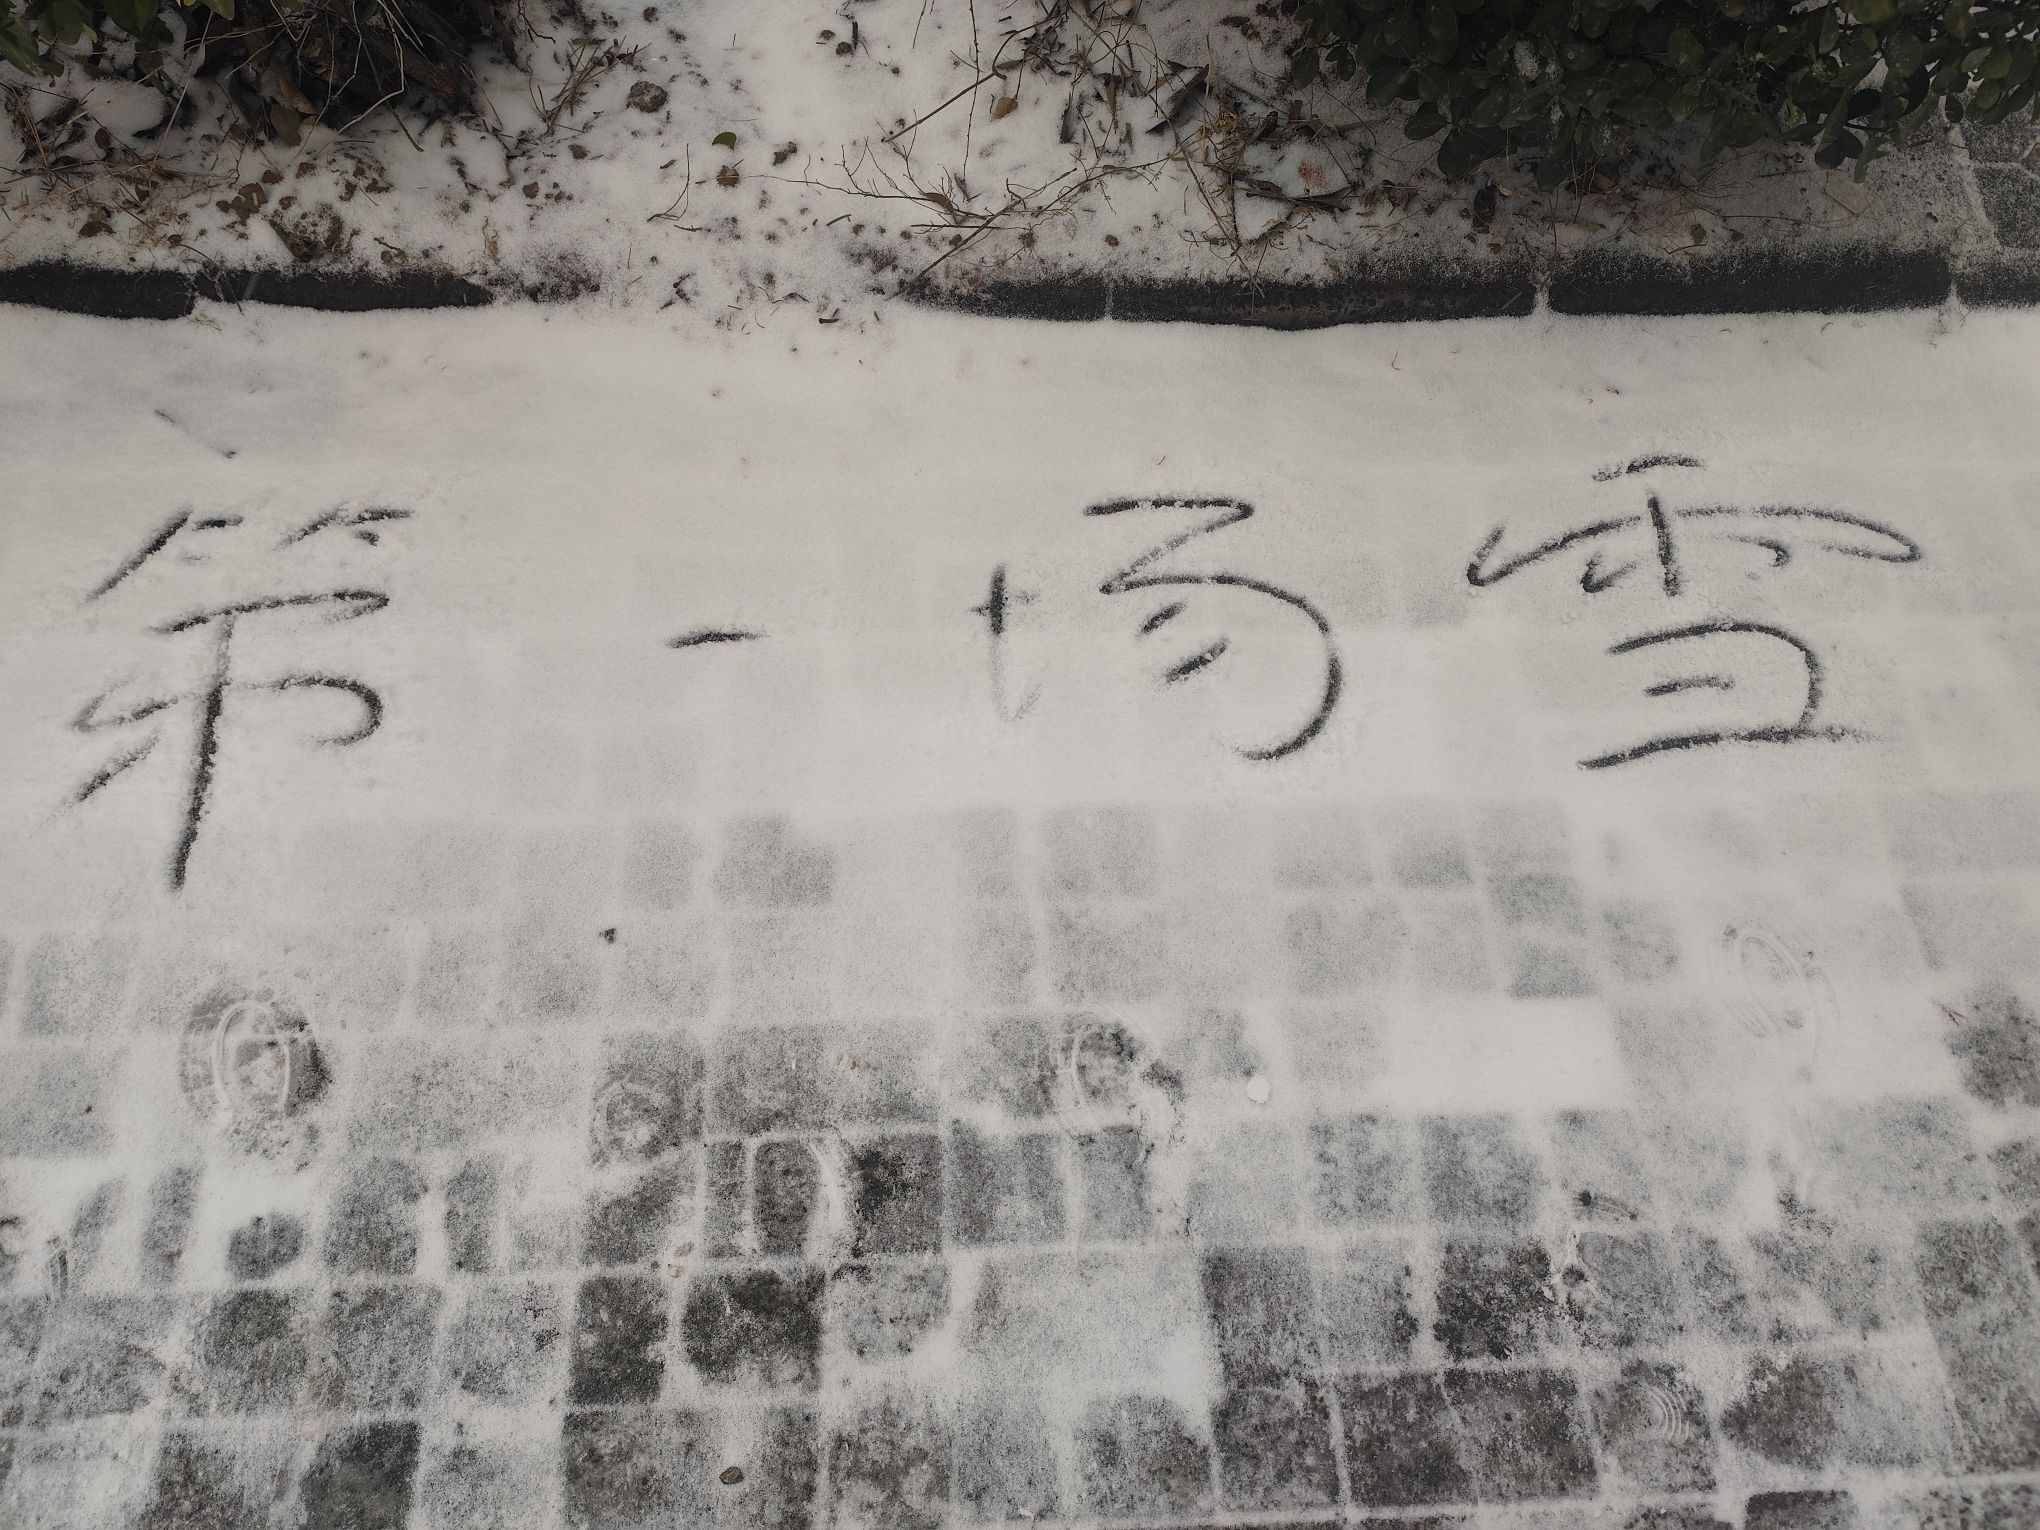 第一场雪